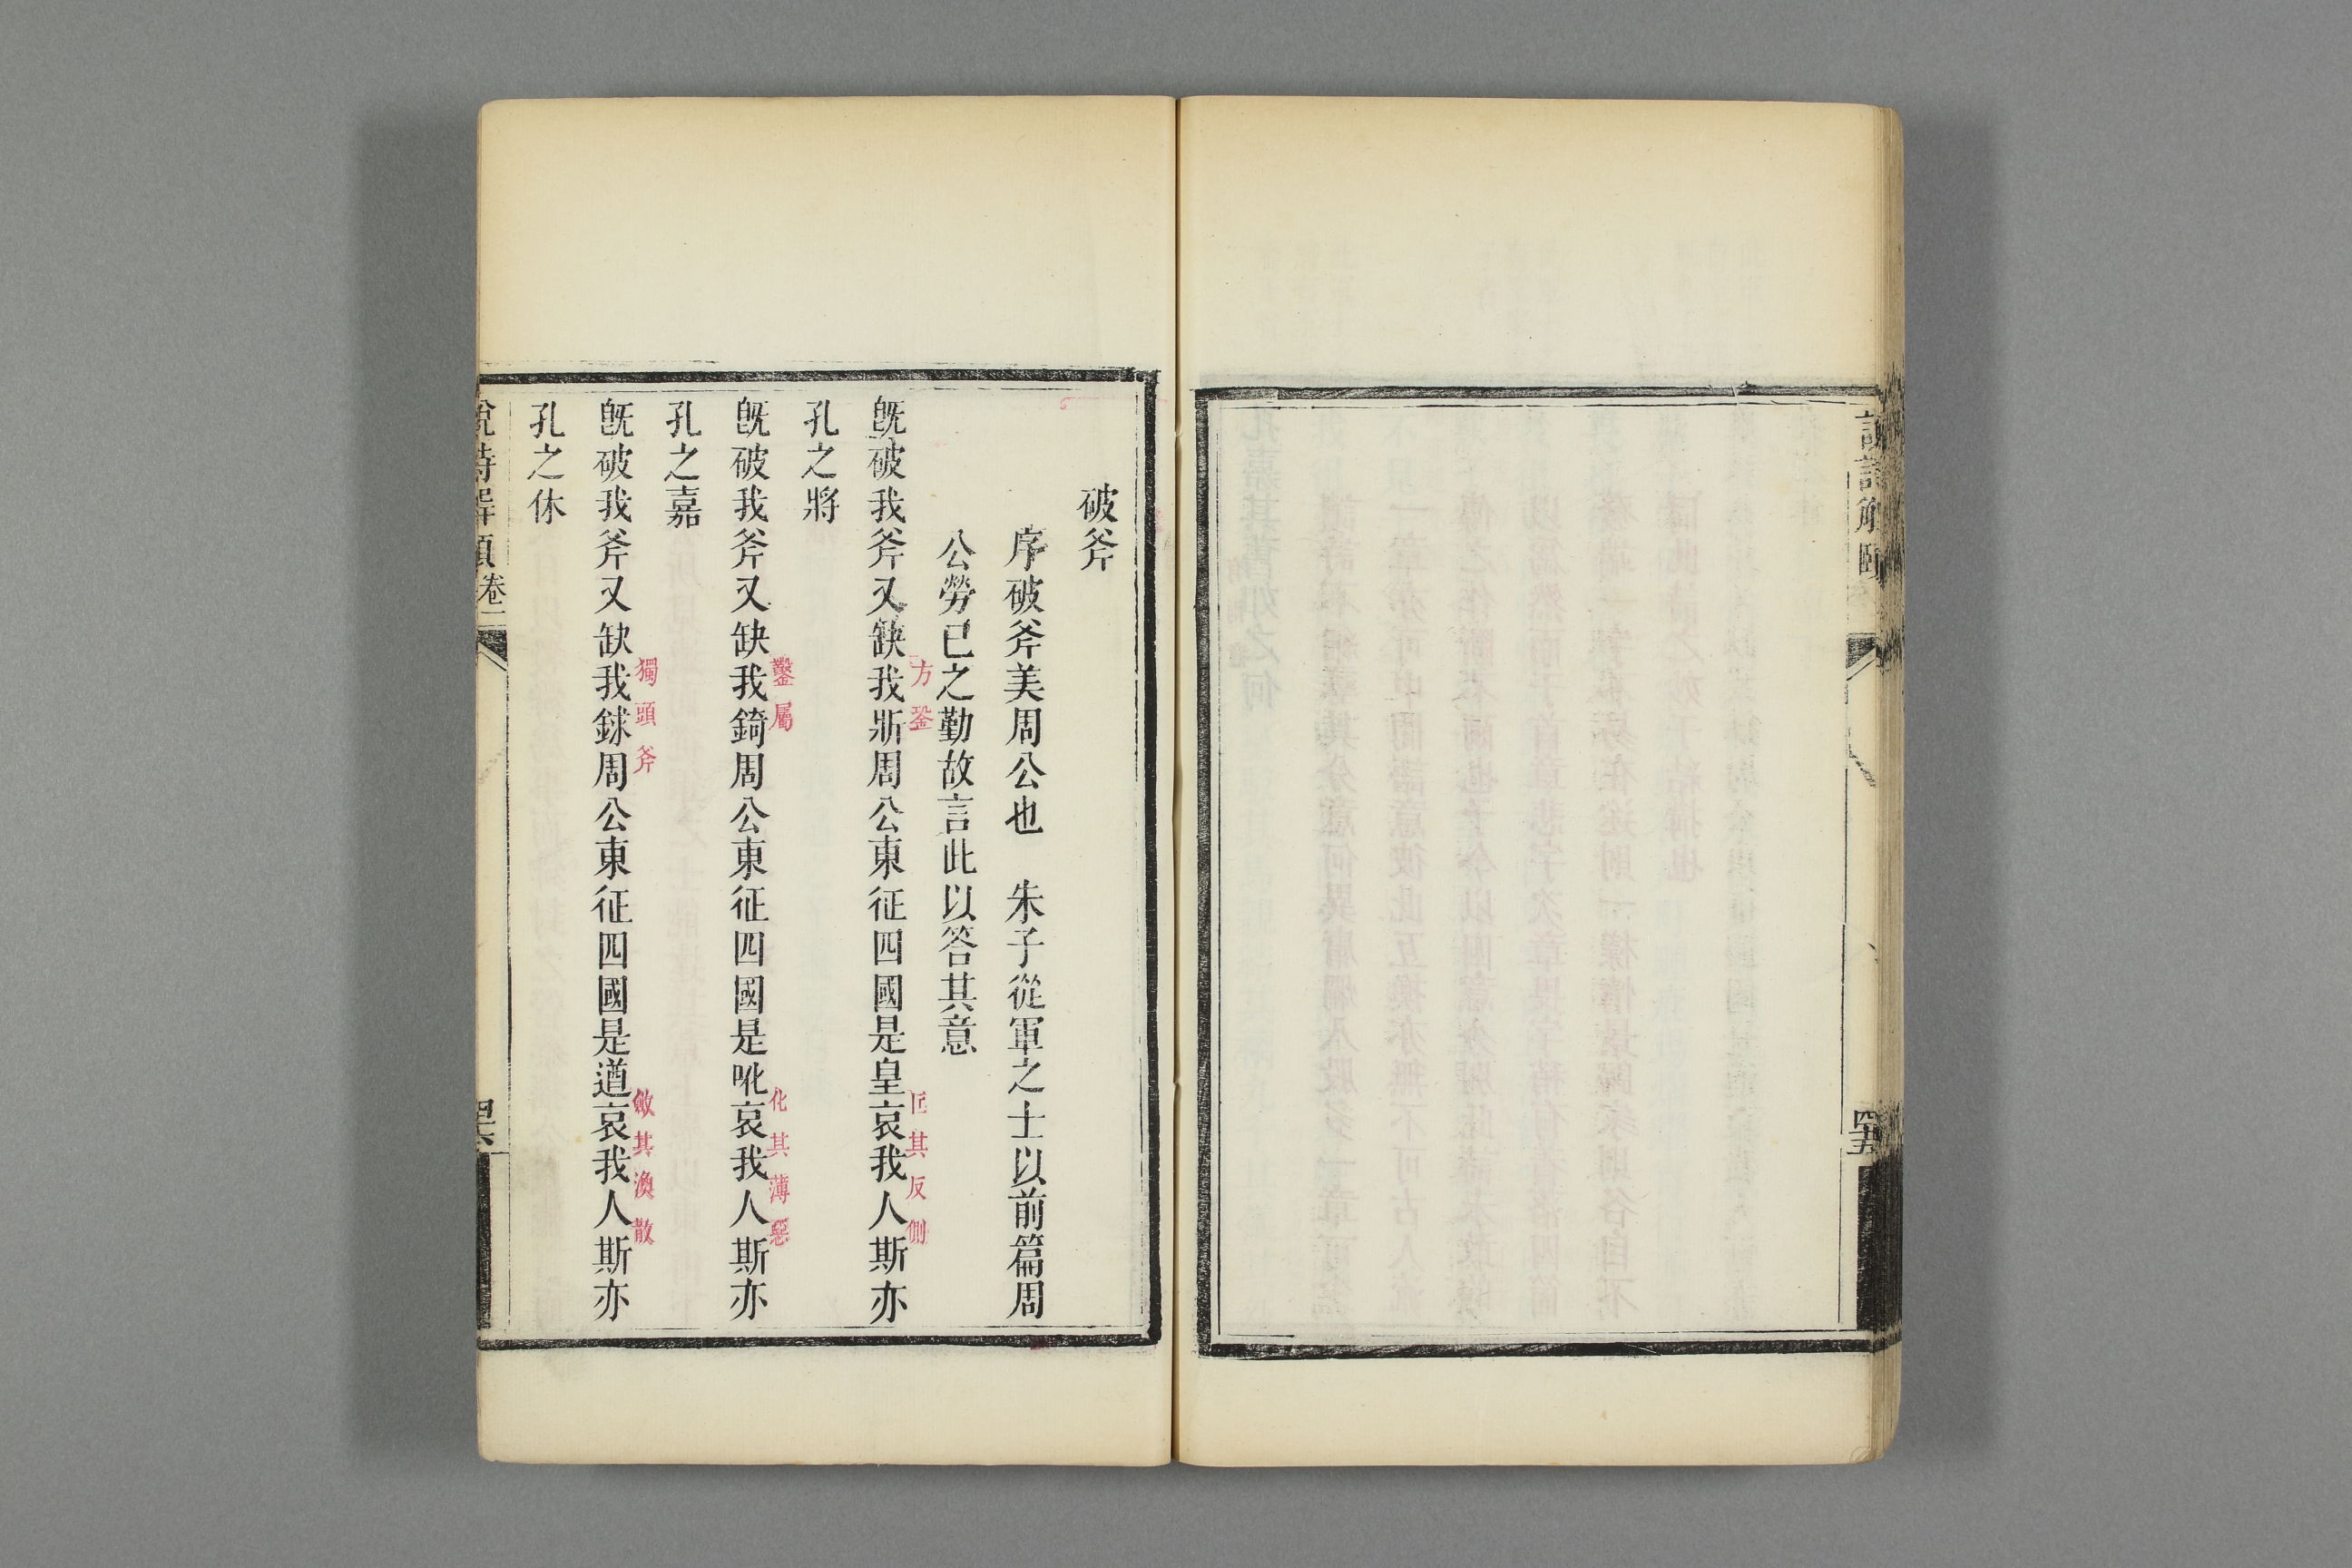 破斧
序破斧美周公也　朱子從軍之士以前篇周
公勞已之勤故言此以答其意
旣破我斧又缺我斨周公東征四國是皇哀我人斯亦
方銎
匡其反側
孔之將
旣破我斧又缺我錡周公東征四國是吪哀我人斯亦
鑿屬
化其薄惡
孔之嘉
旣破我斧又缺我銶周公東征四國是遒哀我人斯亦
獨頭斧
斂其渙散
孔之休
卷二
四十五